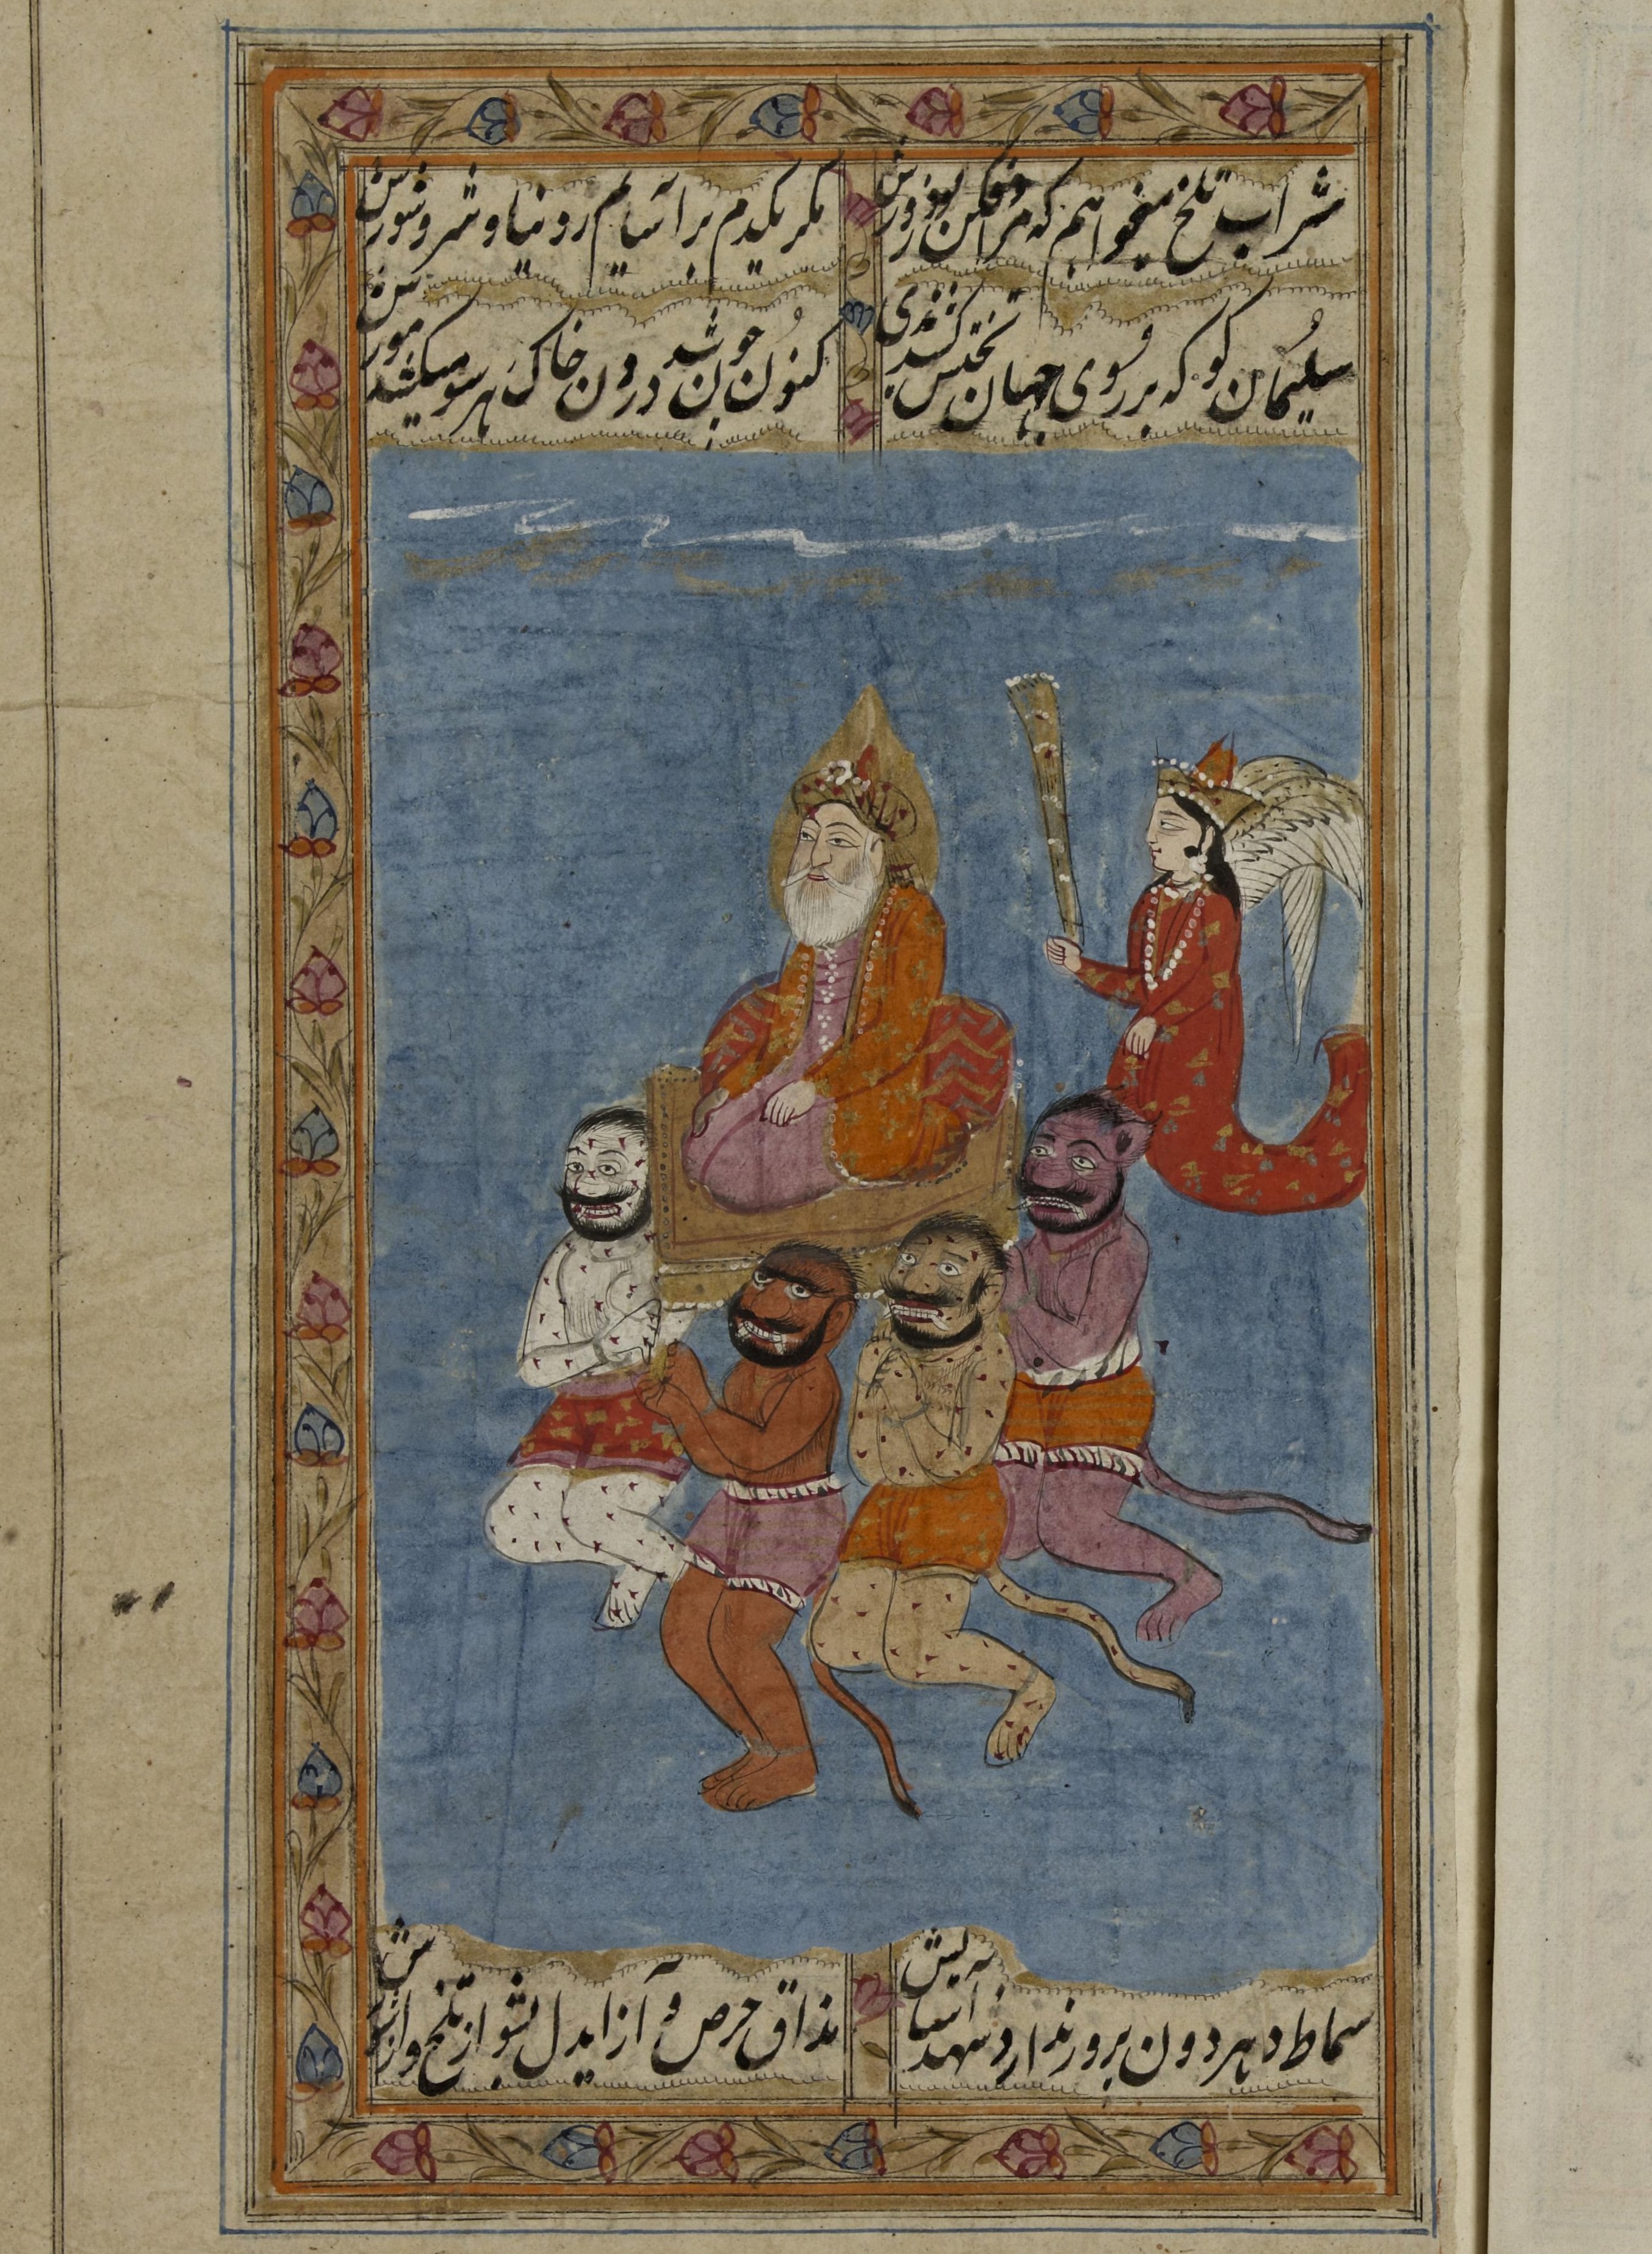 شراب تلخ میخواهم که مردافکن بود زورش
مکر یکدم براسایم ز دنیا و شر و شورش
سلیمان کو که بر روی جهان تختش کشیدندی
کنون چون شد درون خاک هر سو میکشد مورش
سماط دهر دون برور ندارد شهد آسایش
مذاق حرص و آز ایدل بشو از تلخ و از شورش